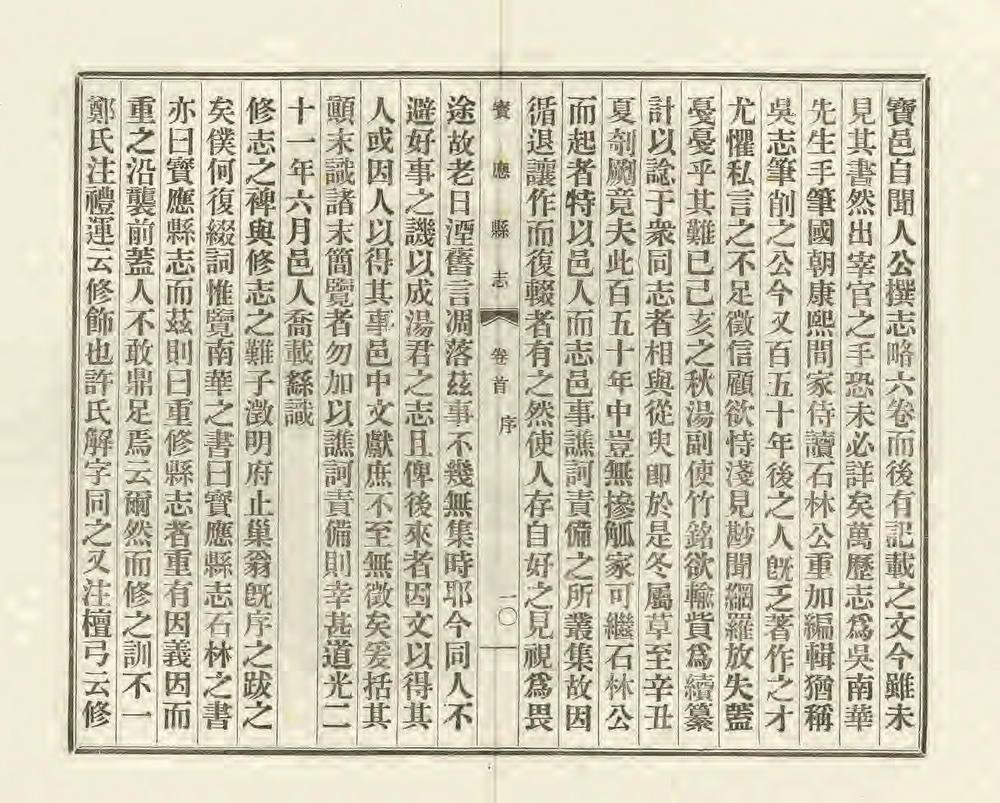 寶邑自聞人公撰志略六卷而後有記載之文今雖未
見其書然出宰官之手恐未必詳矣萬歷志爲吳南華
先生手筆國朝康熙間家侍讀石林公重加編輯猶稱
吳志筆削之公今又百五十年後之人旣乏著作之才
尤懼私言之不足徵信顧欲恃淺見尠聞網羅放失蓋
戞戞乎其難已己亥之秋湯副使竹銘欲輸貲爲續纂
計以諗于衆同志者相與從臾卽於是冬屬草至辛丑
夏剞劂竟夫此百五十年中豈無摻觚家可繼石林公
而起者特以邑人而志邑事譙訶責備之所叢集故因
循退讓作而復輟者有之然使人存自好之見視爲畏
寶應縣志 卷首 序 一〇
途故老日湮舊言凋落茲事不幾無集時耶今同人不
避好事之譏以成湯君之志且俾後來者因文以得其
人或因人以得其事邑中文獻庶不至無徵矣爰括其
顛末識諸末簡覽者勿加以譙訶責備則幸甚道光二
十一年六月邑人喬載繇識
修志之裨與修志之難子澂明府止巢翁旣序之跋之
矣僕何復綴詞惟覽南華之書曰寶應縣志石林之書
亦曰寶應縣志而茲則曰重修縣志者重有因義因而
重之沿襲前蓋人不敢鼎足焉云爾然而修之訓不一
鄭氏注禮運云修飾也許氏解字同之又注檀弓云修